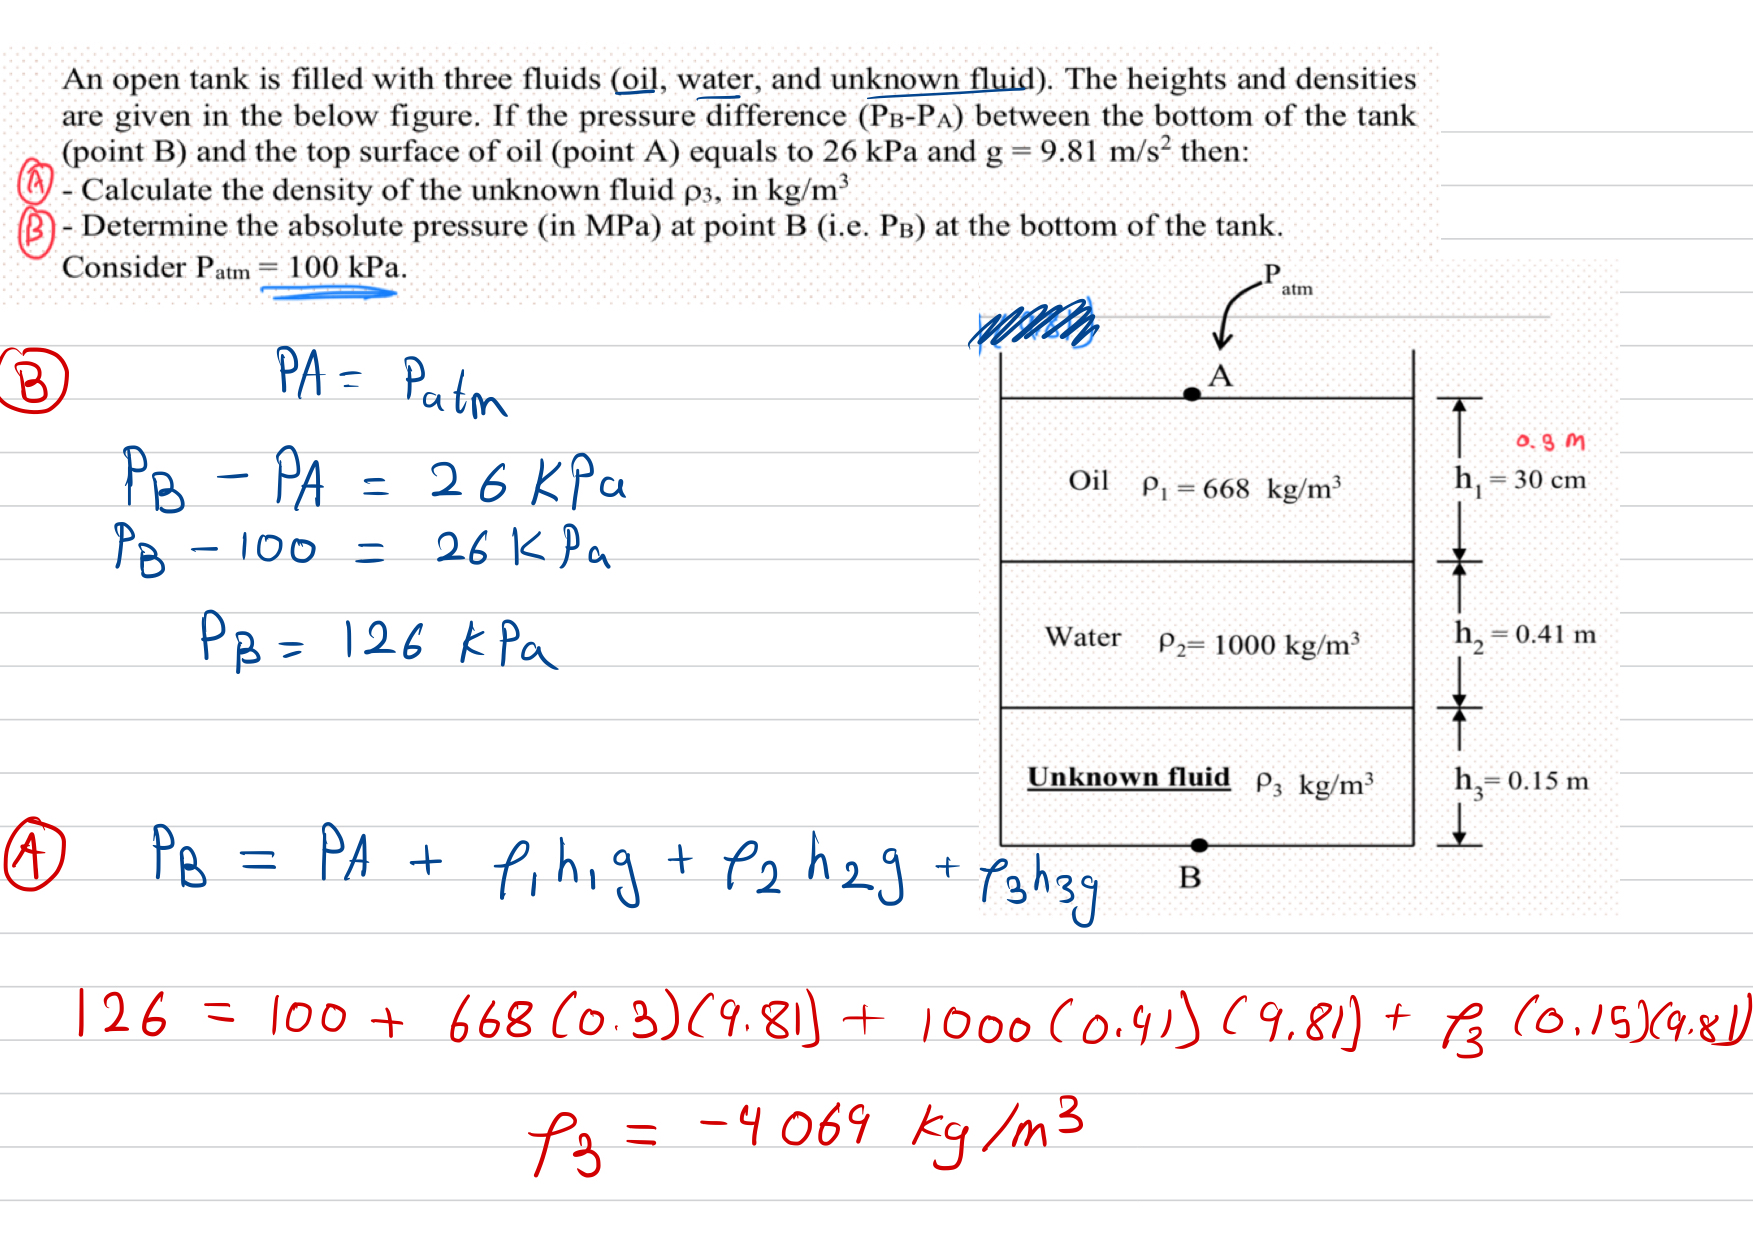 An open tank is filled with three fluids (oil, water, and unknown fluid). The heights and densities
are given in the below figure. If the pressure difference (PB-PA) between the bottom of the tank
(point B) and the top surface of oil (point A) equals to 26 kPa and g = 9.81 m/s² then:
A - Calculate the density of the unknown fluid ρ3, in kg/m³
B - Determine the absolute pressure (in MPa) at point B (i.e. PB) at the bottom of the tank.
Consider Patm = 100 kPa.
Patm
A
0.3 m
Oil ρ1 = 668 kg/m³ h1 = 30 cm
Water ρ2= 1000 kg/m³ h2 = 0.41 m
Unknown fluid ρ3 kg/m³ h3= 0.15 m
B
B PA = Patm
PB - PA = 26 KPa
PB - 100 = 26 KPa
PB = 126 kPa
A PB = PA + ρ1h1g + ρ2h2g + ρ3h3g
126 = 100 + 668(0.3)(9.81) + 1000(0.41)(9.81) + ρ3(0.15)(9.81)
ρ3 = -4069 kg/m3